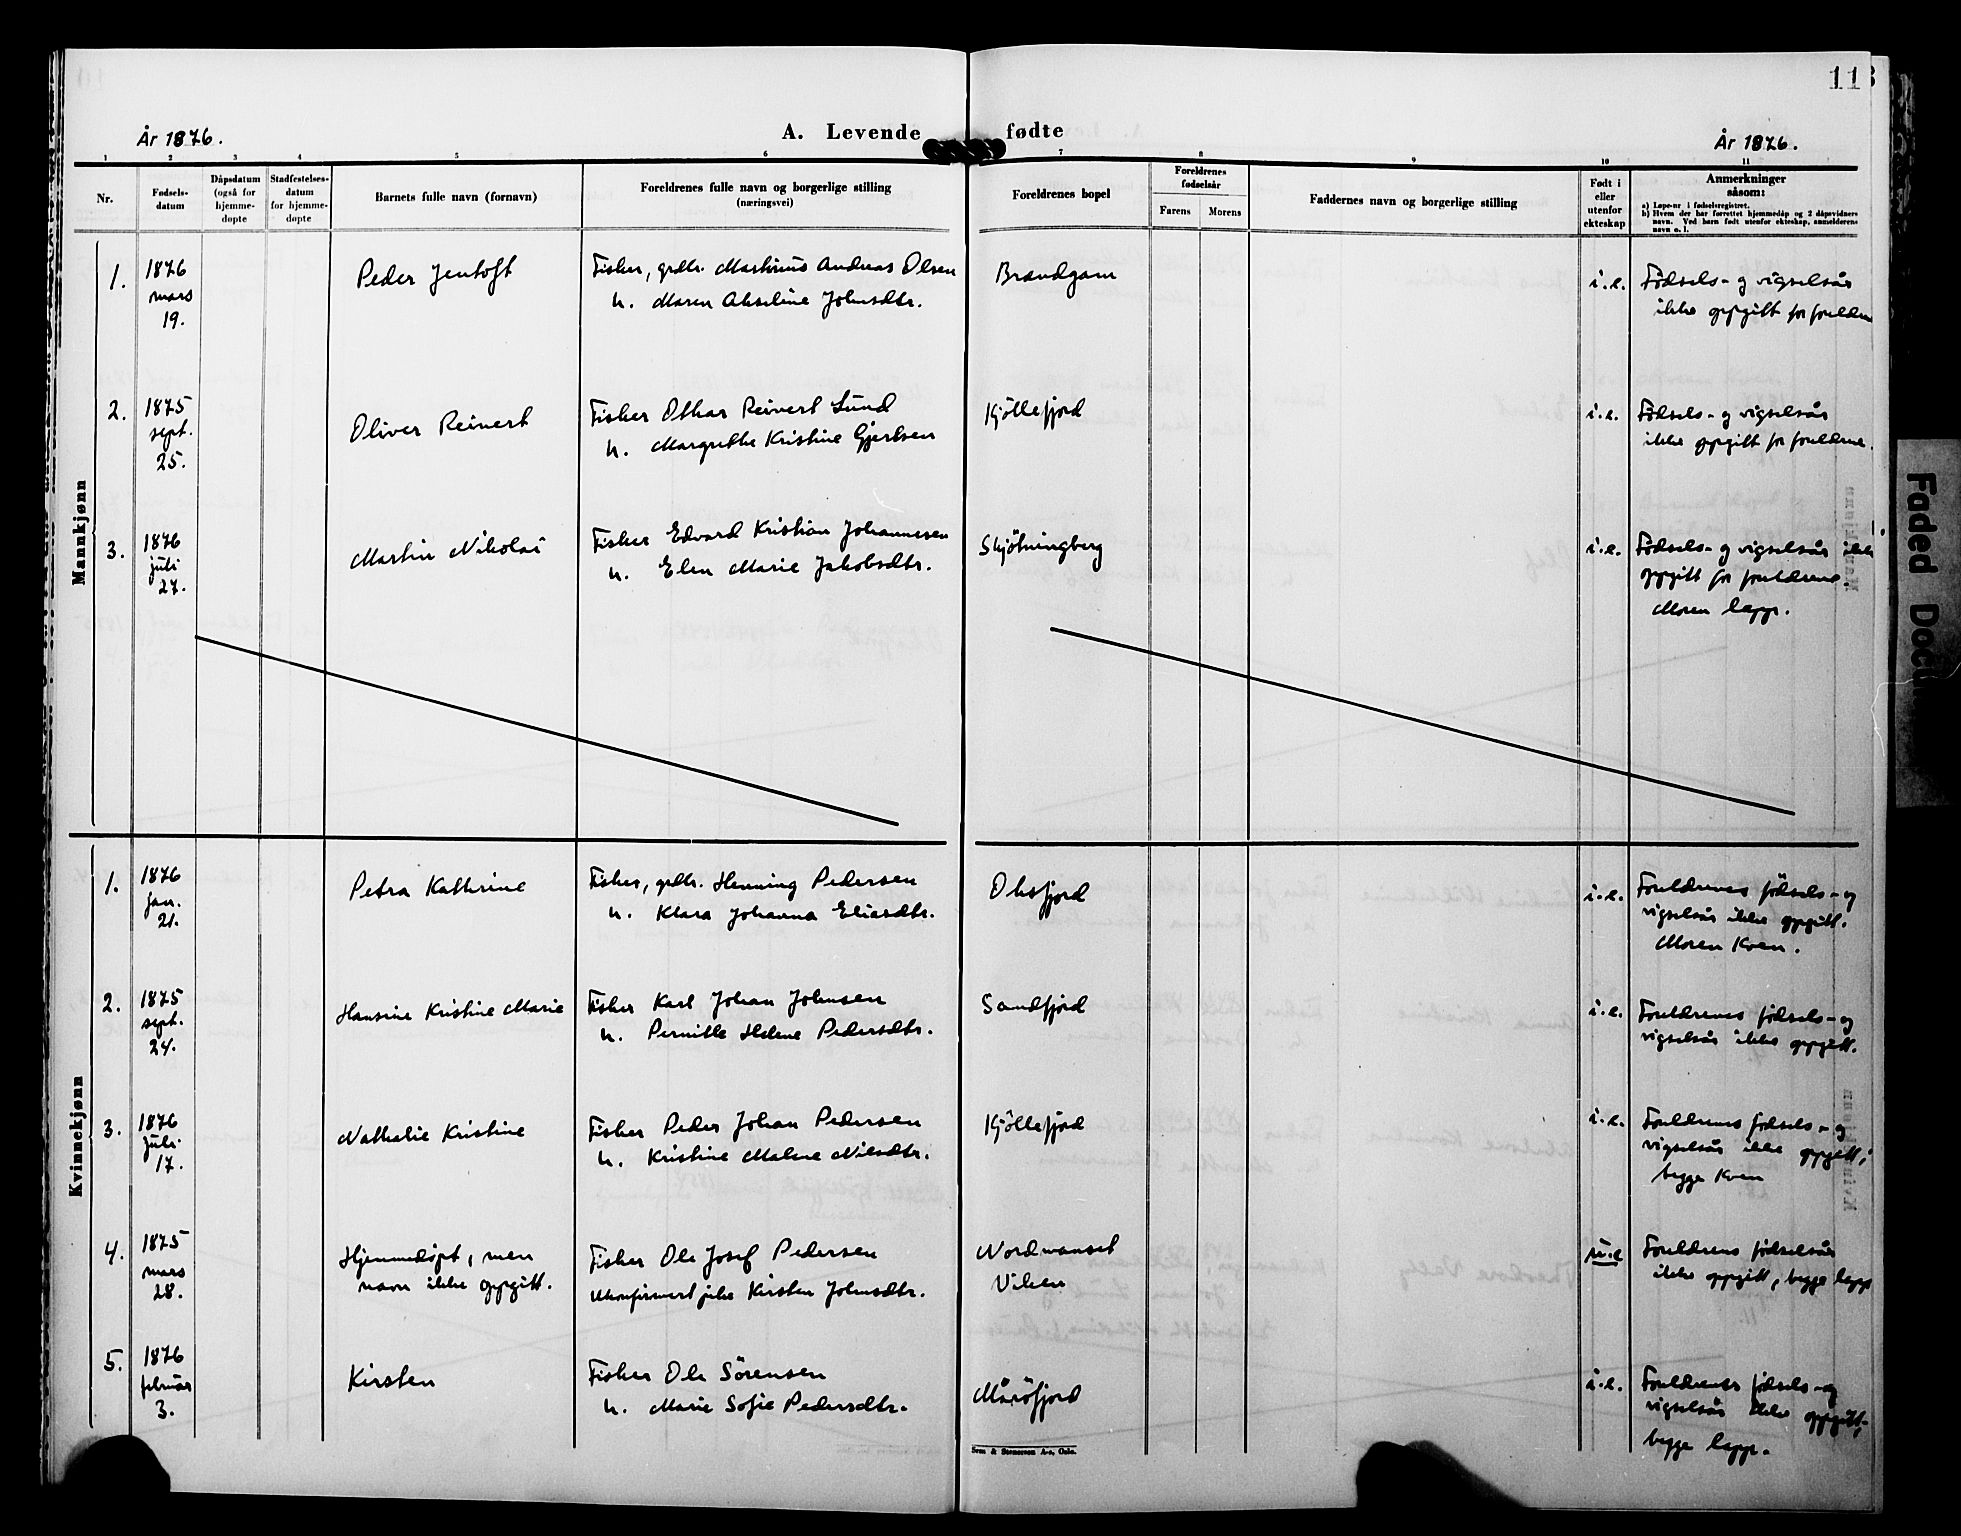 113
År 1876.
A. Levende fødte
År 1876.
1 2 3 4 5 6 7 8 9 10 11
Nr.
Fødsels-
datum
Dåpsdatum
(også for
hjemme-
døpte
Stadfestelses-
datum
for hjemme-
døpte
Barnets fulle navn (fornavn)
Foreldrenes fulle navn og borgerlige stilling
(næringsvei)
Foreldrenes bopel
Foreldrenes
fødselsår
Farens Morens
Faddernes navn og borgerlige stilling
Født i
eller
utenfor
ekteskap
Anmerkninger
såsom:
a) Løpe-nr i fødselsregistret.
b) Hvem der har forrettet hjemmedåp og 2 dåpsvidners
navn. Ved barn født utenfor ekteskap, anmelderens
navn o. l.
Mannkjønn
1.
1876
mars
19.
Peder Jentoft
Fisker, grdbr. Martinus Andreas Olsen
h. Maren Akseline Johnsdtr.
Brandgam
i.e.
Fødsels- og vigselsår
ikke oppgitt for foreldrene
2.
1875
sept.
25.
Oliver Reinert
Fisker Othar Reinert Lund
h. Margrethe Kristine Gjertsen
Kjöllefjord
i.e.
Fødsels- og vigselsår
ikke oppgitt for foreldrene.
3.
1876
juli
27.
Martin Nikolai
Fisker Edvard Kristian Johannesen
h. Elen Marie Jakobsdtr.
Skjötningberg
i.e.
Fødsels- og vigselsår ikke
oppgitt for foreldrene.
Moren lapp.
Kvinnekjønn
1.
1876
jan.
21.
Petra Kathrine
Fisker, grdbr. Henning Pedersen
h. Klara Johanna Eliasdtr.
Oksfjord
i.e.
Foreldrenes fødsels- og
vigselsår ikke oppgitt.
Moren Kven.
2.
1875
sept.
24.
Hansine Kristine Marie
Fisker Karl Johan Johnsen
h. Pernille Helene Pedersdtr.
Sandfjord
i.e.
Foreldrenes fødsels- og
vigselsår ikke oppgitt.
3.
1876
juli
17.
Nathalie Kristine
Fisker Peder Johan Pedersen
h. Kristine Malene Nilsdtr.
Kjöllefjord
i.e.
Foreldrenes fødsels- og
vigselsår ikke oppgitt;
begge Kven
4.
1875
mars
28.
Hjemmedøpt, men
navn ikke oppgitt.
Fisker Ole Josef Pedersen
Ukonfirmert pike Kirsten Johnsdtr.
Nordmanset
Viken
u.e
Foreldrenes fødselsår
ikke oppgitt, begge lapp
5.
1876
februar
3.
Kirsten
Fisker Ole Sörensen
h. Marie Sofie Pedersdtr.
Måröfjord
i.e.
Foreldrenes fødsels- og
vigselsår ikke oppgitt;
begge lapp.
Sem & Stenersen A-s, Oslo.
Faded Docu